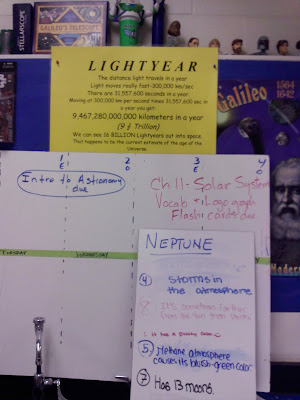 STELLARSCOPE
GALILEO'S TELESCOPE
LIGHTYEAR
The distance light travels in a year
Light moves really fast-300,000 km/sec
There are 31,557,600 seconds in a year.
Moving at 300,000 km per second times 31,557,600 sec in
a year you get:
9,467,280,000,000 kilometers in a year
(9 ½ Trillion)
We can see 16 BILLION Lightyears out into space.
That happens to be the current estimate of the age of the
Universe.
Galileo
1564
1642
1
E
2
O
3
E
4
O
Intro to Astronomy
due
Ch 11- Solar System
Vocab + Logograph
Flash cards due
TUESDAY
WEDNESDAY
NEPTUNE
4 Storms in
the atmosphere
8 It's sometimes farther
from the sun than Pluto
5 Methane atmosphere
causes its bluish-green color
7 Has 13 moons.